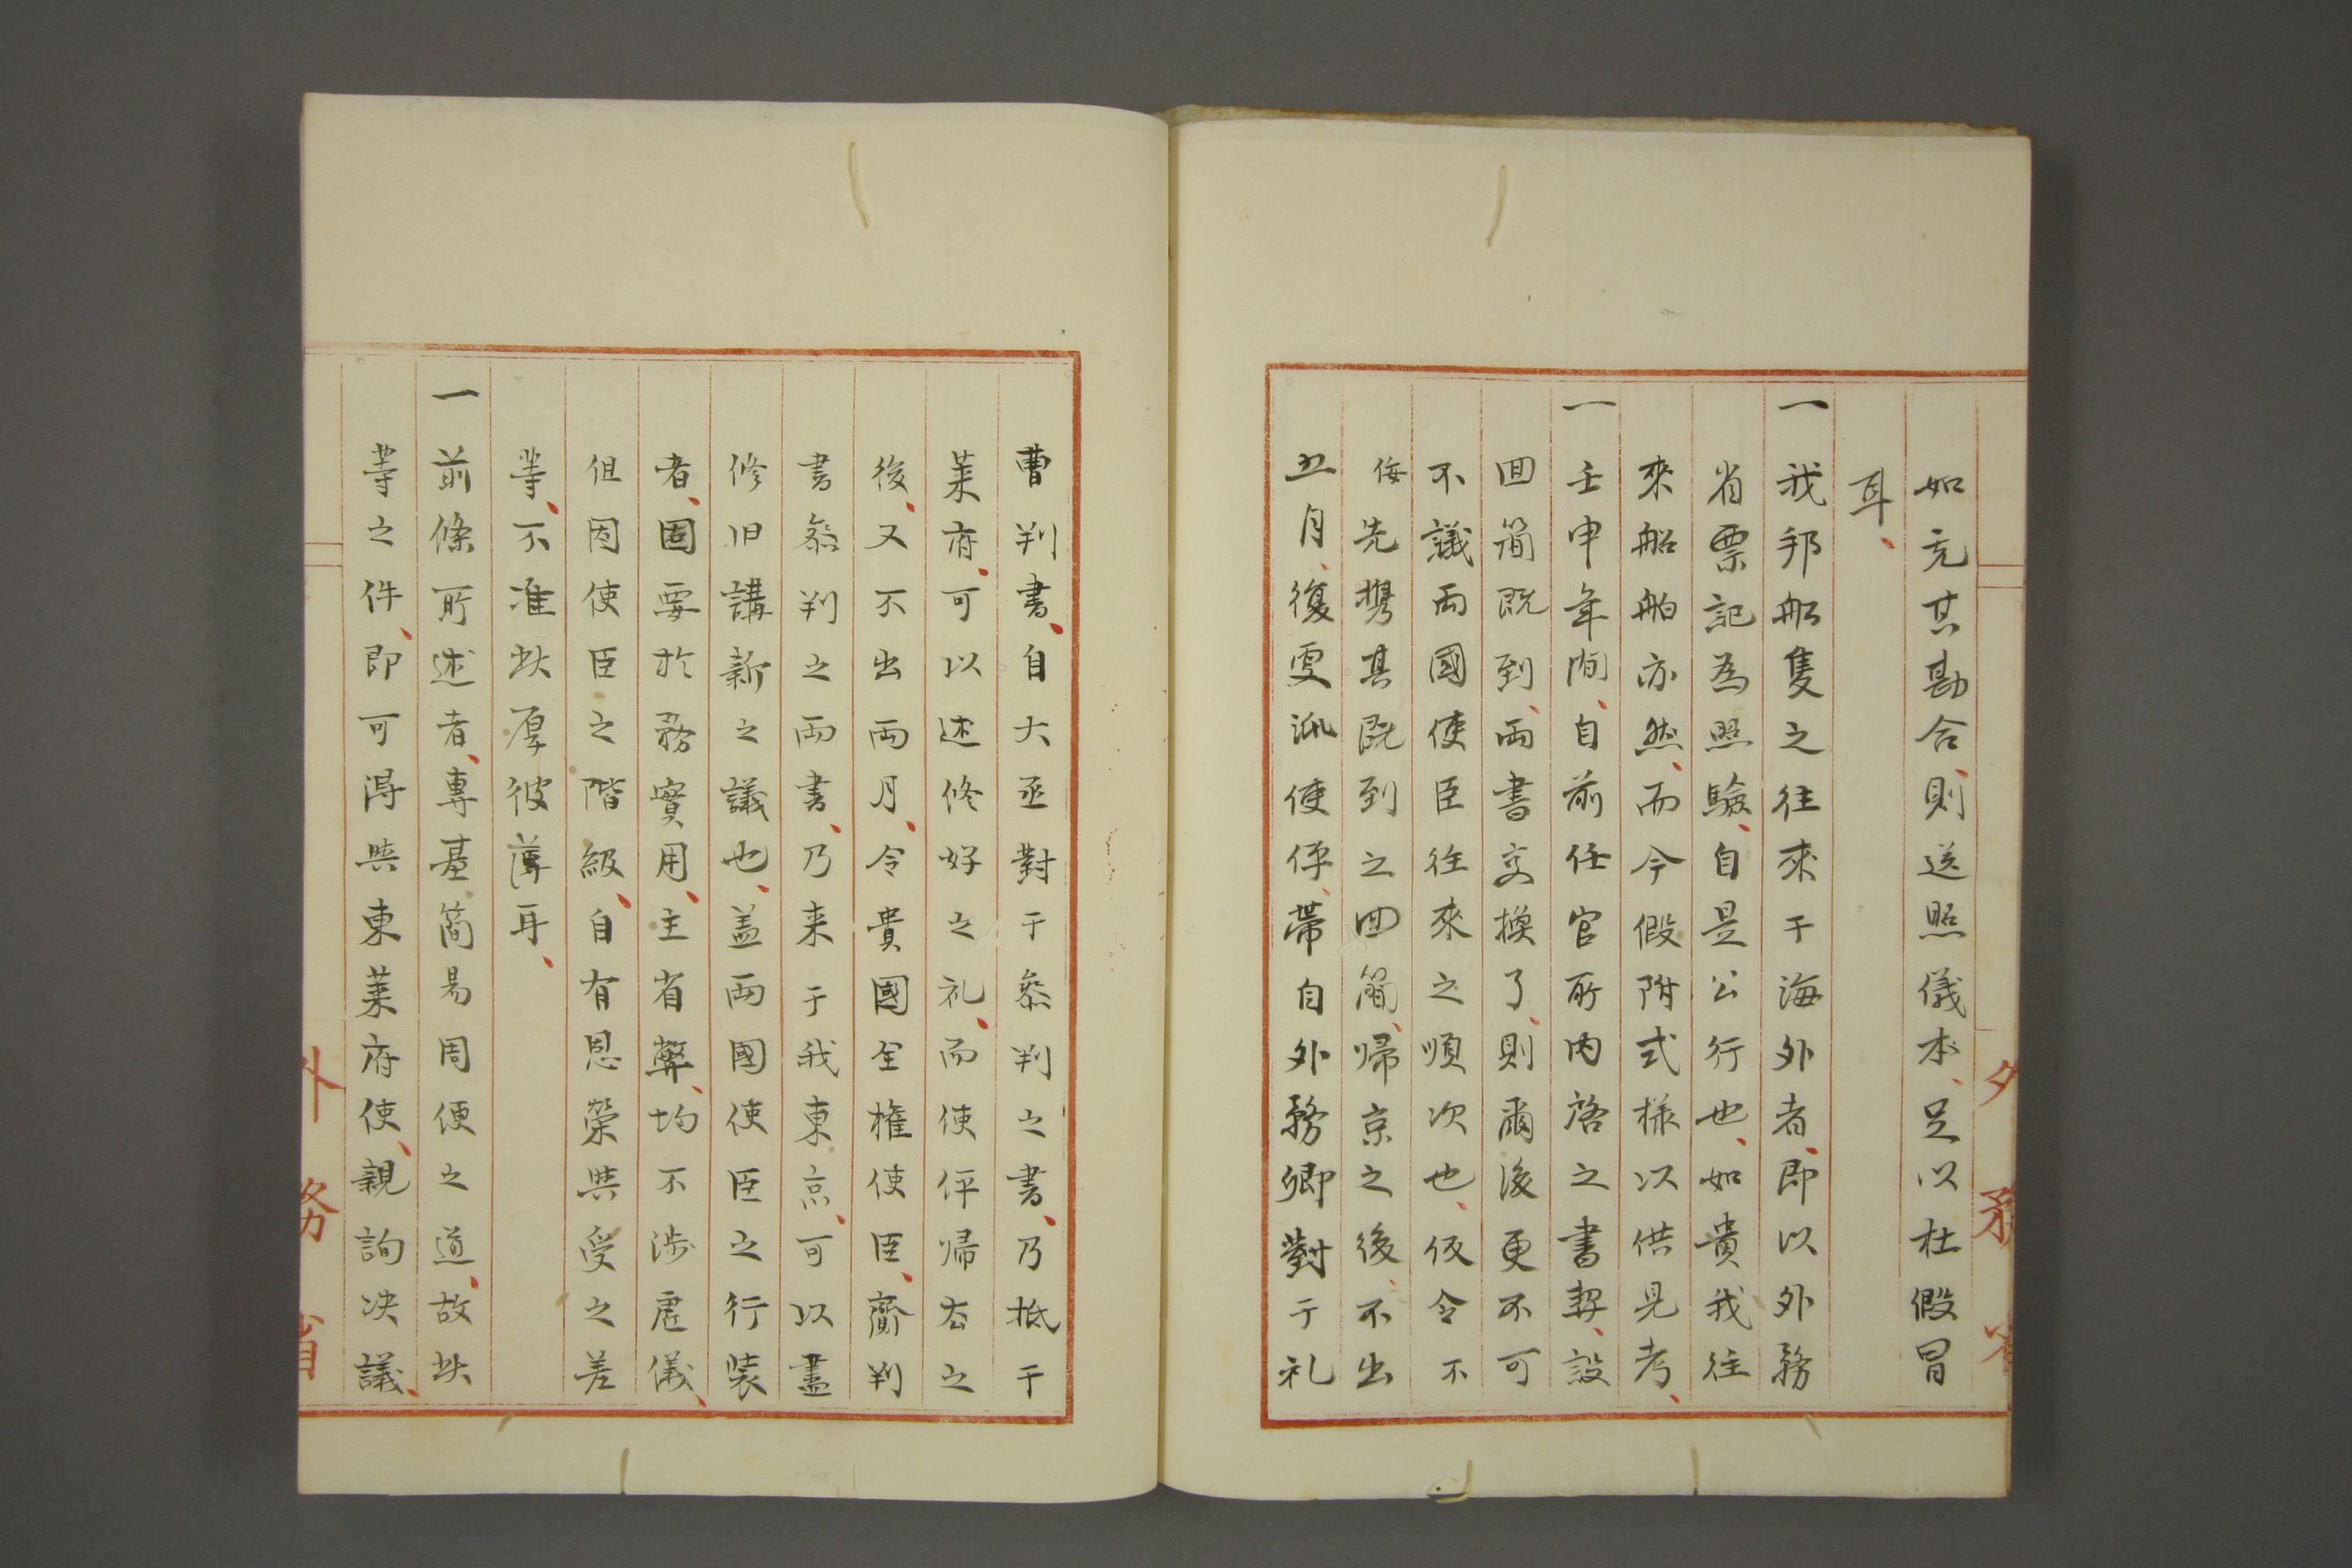 如充其勘合、則送照儀本、足以杜假冒
耳、
一我邦船隻之往來于海外者、即以外務
省票記為照驗、自是公行也、如貴我往
來船舶亦然、而今假附式樣以供見考、
一壬申年間、自前任官所内啓之書契、設
回簡既到、両書交換了、則爾後更不可
不議両國使臣往來之順次也、仮令不
侫先携其既到之回簡、帰京之後、不出
五月、復更派使伻、帯自外務卿對于礼
曹判書、自大丞對于叅判之書、乃抵于
莱府、可以述修好之礼、而使伻帰去之
後、又不出両月、令貴國全權使臣、齎判
書叅判之両書、乃来于我東京、可以盡
修旧講新之議也、盖両國使臣之行装
者、固要於務實用、主省弊、均不渉虚儀、
但因使臣之階級、自有恩榮與受之差
等、不准此厚彼薄耳、
一前條所述者、專基簡易周便之道、故此
等之件、即可得與東莱府使、親詢决議、
外務省